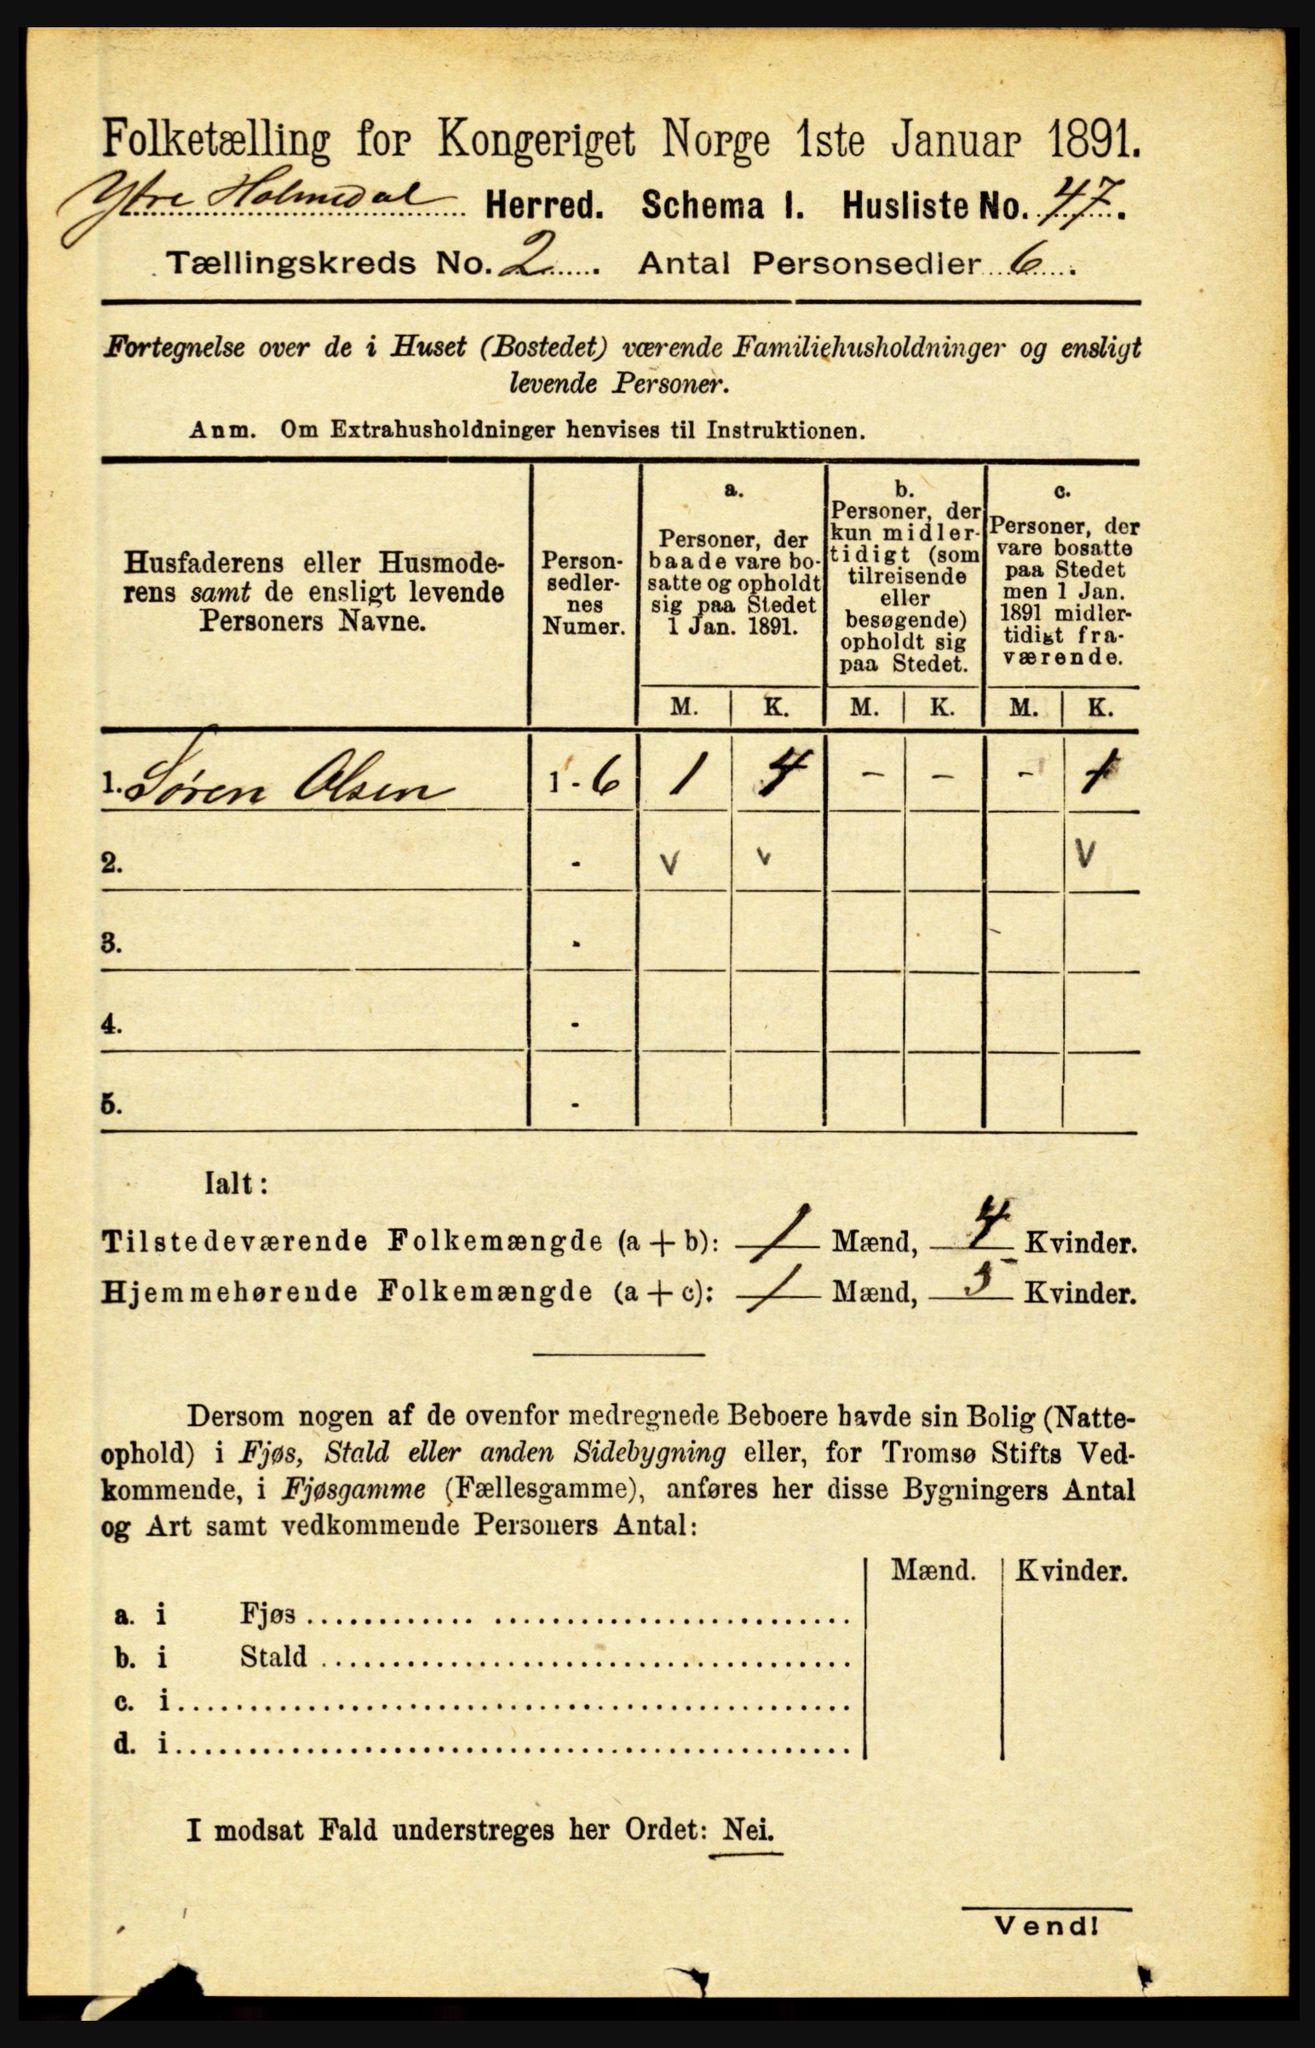 Folketælling for Kongeriget Norge 1ste Januar 1891.
Ytre Holmedal Herred. Schema I. Husliste No. 47.
Tællingskreds No. 2. Antal Personsedler 6.
Fortegnelse over de i Huset (Bostedet) værende Familiehusholdninger og ensligt
levende Personer.
Anm. Om Extrahusholdninger henvises til Instruktionen.
Husfaderens eller Husmode-
rens samt de ensligt levende
Personers Navne.
Person-
sedler-
nes
Numer.
a.
Personer, der
baade vare bo-
satte og opholdt
sig paa Stedet
1 Jan. 1891.
b.
Personer, der
kun midler-
tidigt (som
tilreisende
eller
besøgende)
opholdt sig
paa Stedet.
c.
Personer, der
vare bosatte
paa Stedet
men 1 Jan.
1891 midler-
tidigt fra-
værende.
M. K. M. K. M. K.
1. Søren Olsen 1 - 6 1 4 - - - 1
2. - v v v
3. -
4. -
5. -
Ialt:
Tilstedeværende Folkemængde (a + b): 1 Mænd, 4 Kvinder.
Hjemmehørende Folkemængde (a + c): 1 Mænd, 5 Kvinder.
Dersom nogen af de ovenfor medregnede Beboere havde sin Bolig (Natte-
ophold) i Fjøs, Stald eller anden Sidebygning eller, for Tromsø Stifts Ved-
kommende, i Fjøsgamme (Fællesgamme), anføres her disse Bygningers Antal
og Art samt vedkommende Personers Antal:
Mænd. Kvinder.
a. i Fjøs
b. i Stald
c. i
d. i
I modsat Fald understreges her Ordet: Nei.
Vend!